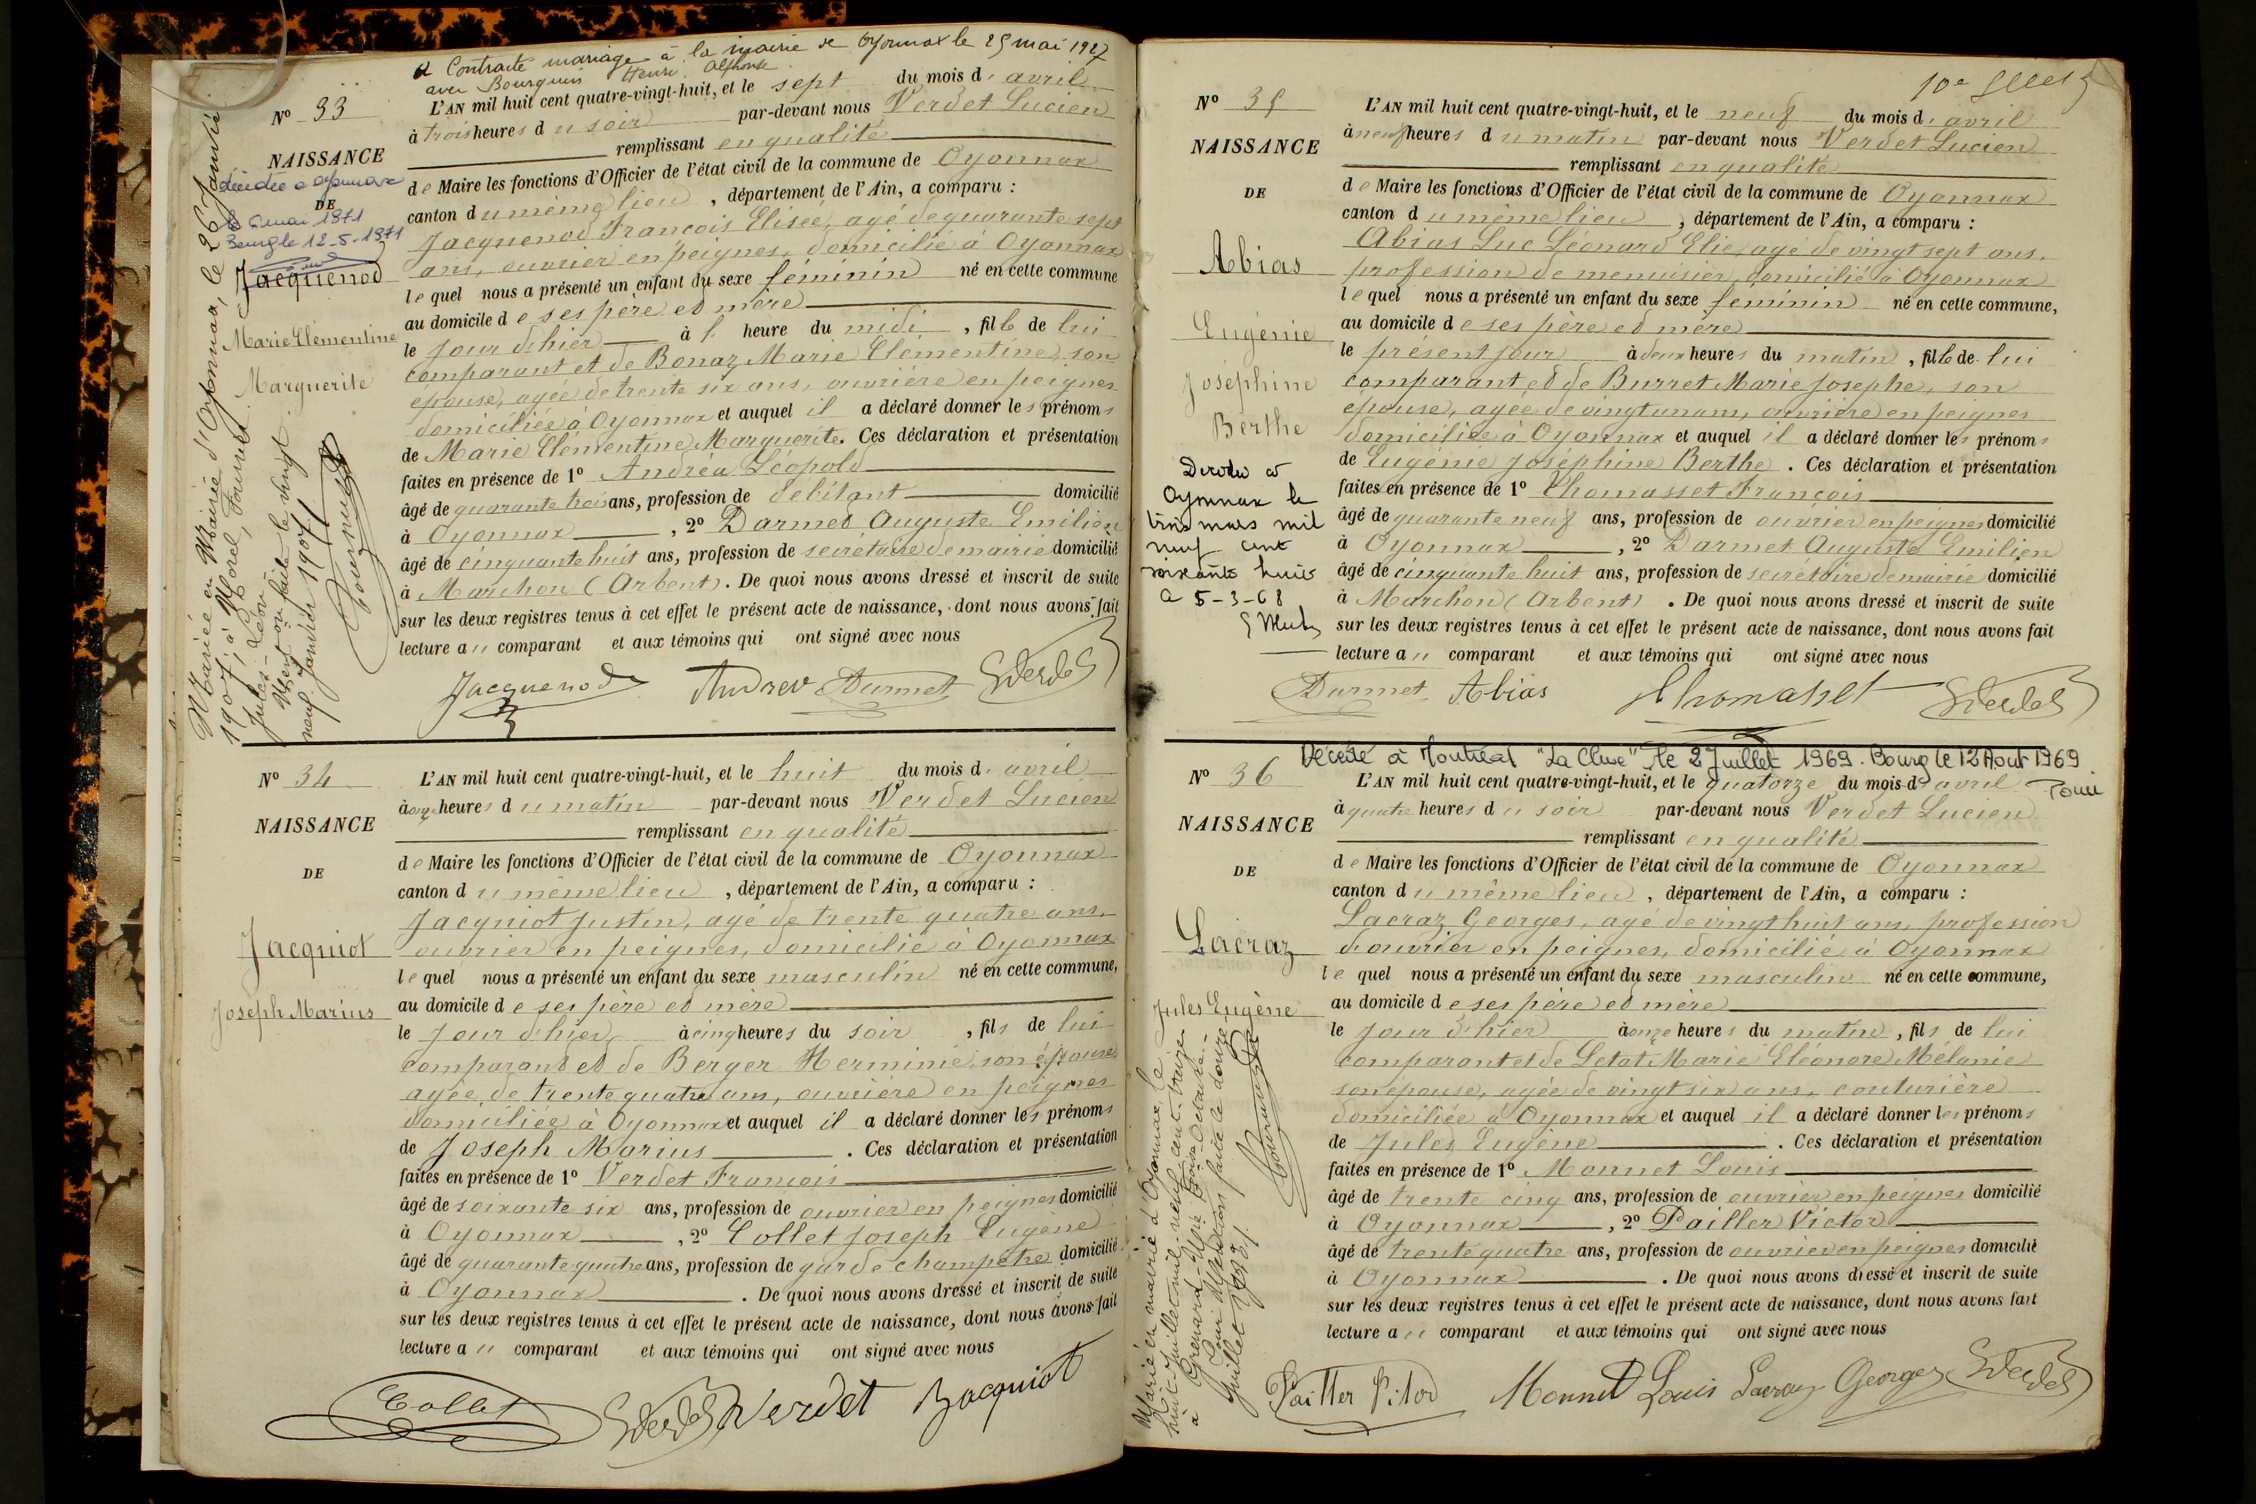 A Contracté mariage à la mairie de Oyonnax le 25 mai 1927
avec Bourguin Henri Alphonse
N° 33
NAISSANCE
décédée à Oyonnax
DE
le 6 mai 1971
Bourg le 12-5-1971
Jacquenod
Marie Clémentine
Marguerite
Mariée en Mairie d'Oyonnax, le 26 Janvier
1907, à Morel, Fournier
Jules-Léon
Mention faite le vingt
neuf Janvier 1907
L'AN mil huit cent quatre-vingt-huit, et le sept du mois d'avril
à trois heures du soir par-devant nous Verdet Lucien
remplissant en qualité
de Maire les fonctions d'Officier de l'état civil de la commune de Oyonnax
canton du même lieu, département de l'Ain, a comparu :
Jacquenod François Elisée, agé de quarante sept
ans, ouvrier en peignes, domicilié à Oyonnax
lequel nous a présenté un enfant du sexe féminin né en cette commune
au domicile de ses père et mère
le jour d'hier à 1 heure du midi, fille de lui
comparant et de Bonaz Marie Clémentine, son
épouse, agée de trente six ans, ouvrière en peignes
domiciliée à Oyonnax et auquel il a déclaré donner les prénoms
de Marie Clémentine Marguerite. Ces déclaration et présentation
faites en présence de 1° Andréa Léopold
âgé de quarante trois ans, profession de débitant domicilié
à Oyonnax, 2° Darmet Auguste Emilien
âgé de cinquante huit ans, profession de secrétaire de mairie domicilié
à Marchon (Arbent). De quoi nous avons dressé et inscrit de suite
sur les deux registres tenus à cet effet le présent acte de naissance, dont nous avons fait
lecture au comparant et aux témoins qui ont signé avec nous
Jacquenod Andrea Darmet Verdet
N° 34
NAISSANCE
DE
Jacquiot
Joseph Marius
L'AN mil huit cent quatre-vingt-huit, et le huit du mois d'avril
à onze heures du matin par-devant nous Verdet Lucien
remplissant en qualité
de Maire les fonctions d'Officier de l'état civil de la commune de Oyonnax
canton du même lieu, département de l'Ain, a comparu :
Jacquiot Justin, agé de trente quatre ans,
ouvrier en peignes, domicilié à Oyonnax
lequel nous a présenté un enfant du sexe masculin né en cette commune,
au domicile de ses père et mère
le jour d'hier à cinq heures du soir, fils de lui
comparant et de Berger Herminie, son épouse
agée de trente quatre ans, ouvrière en peignes
domiciliée à Oyonnax et auquel il a déclaré donner les prénoms
de Joseph Marius. Ces déclaration et présentation
faites en présence de 1° Verdet François
âgé de soixante six ans, profession de ouvrier en peignes domicilié
à Oyonnax, 2° Collet Joseph Eugène
âgé de quarante quatre ans, profession de garde champêtre domicilié
à Oyonnax. De quoi nous avons dressé et inscrit de suite
sur les deux registres tenus à cet effet le présent acte de naissance, dont nous avons fait
lecture au comparant et aux témoins qui ont signé avec nous
Collet Verdet Verdet Jacquiot
N° 35
NAISSANCE
DE
Abias
Eugénie
Joséphine
Berthe
Décédée à
Oyonnax le
trois mars mil
neuf cent
soixante huit
a 5-3-68
L'AN mil huit cent quatre-vingt-huit, et le neuf du mois d'avril
à neuf heures du matin par-devant nous Verdet Lucien
remplissant en qualité
de Maire les fonctions d'Officier de l'état civil de la commune de Oyonnax
canton du même lieu, département de l'Ain, a comparu :
Abias Luc Léonard Elie, agé de vingt sept ans,
profession de menuisier, domicilié à Oyonnax
lequel nous a présenté un enfant du sexe féminin né en cette commune,
au domicile de ses père et mère
le présent jour à deux heures du matin, fille de lui
comparant et de Burret Marie Josephe, son
épouse, agée de vingt un ans, ouvrière en peignes
domiciliée à Oyonnax et auquel il a déclaré donner les prénoms
de Eugénie Joséphine Berthe. Ces déclaration et présentation
faites en présence de 1° Thomasset François
âgé de quarante neuf ans, profession de ouvrier en peignes domicilié
à Oyonnax, 2° Darmet Auguste Emilien
âgé de cinquante huit ans, profession de secrétaire de mairie domicilié
à Marchon (Arbent). De quoi nous avons dressé et inscrit de suite
sur les deux registres tenus à cet effet le présent acte de naissance, dont nous avons fait
lecture au comparant et aux témoins qui ont signé avec nous
Darmet Abias Thomasset Verdet
Décédé à Montréal "La Cluse" le 27 Juillet 1969. Bourg le 12 Août 1969
N° 36
NAISSANCE
DE
Lacraz
Jules Eugène
Marié en mairie d'Oyonnax, le
huit Juillet mil neuf cent treize
à Grenard, Marie
Mention faite le douze
Juillet 1913
L'AN mil huit cent quatre-vingt-huit, et le quatorze du mois d'avril
à quatre heures du soir par-devant nous Verdet Lucien
remplissant en qualité
de Maire les fonctions d'Officier de l'état civil de la commune de Oyonnax
canton du même lieu, département de l'Ain, a comparu :
Lacraz Georges, agé de vingt huit ans, profession
d'ouvrier en peignes, domicilié à Oyonnax
lequel nous a présenté un enfant du sexe masculin né en cette commune,
au domicile de ses père et mère
le jour d'hier à onze heures du matin, fils de lui
comparant et de Letat Marie Eléonore Mélanie
son épouse, agée de vingt six ans, couturière
domiciliée à Oyonnax et auquel il a déclaré donner les prénoms
de Jules Eugène. Ces déclaration et présentation
faites en présence de 1° Monnet Louis
âgé de trente cinq ans, profession de ouvrier en peignes domicilié
à Oyonnax, 2° Pailler Victor
âgé de trente quatre ans, profession de ouvrier en peignes domicilié
à Oyonnax. De quoi nous avons dressé et inscrit de suite
sur les deux registres tenus à cet effet le présent acte de naissance, dont nous avons fait
lecture au comparant et aux témoins qui ont signé avec nous
Pailler Victor Monnet Louis Lacraz Georges Verdet